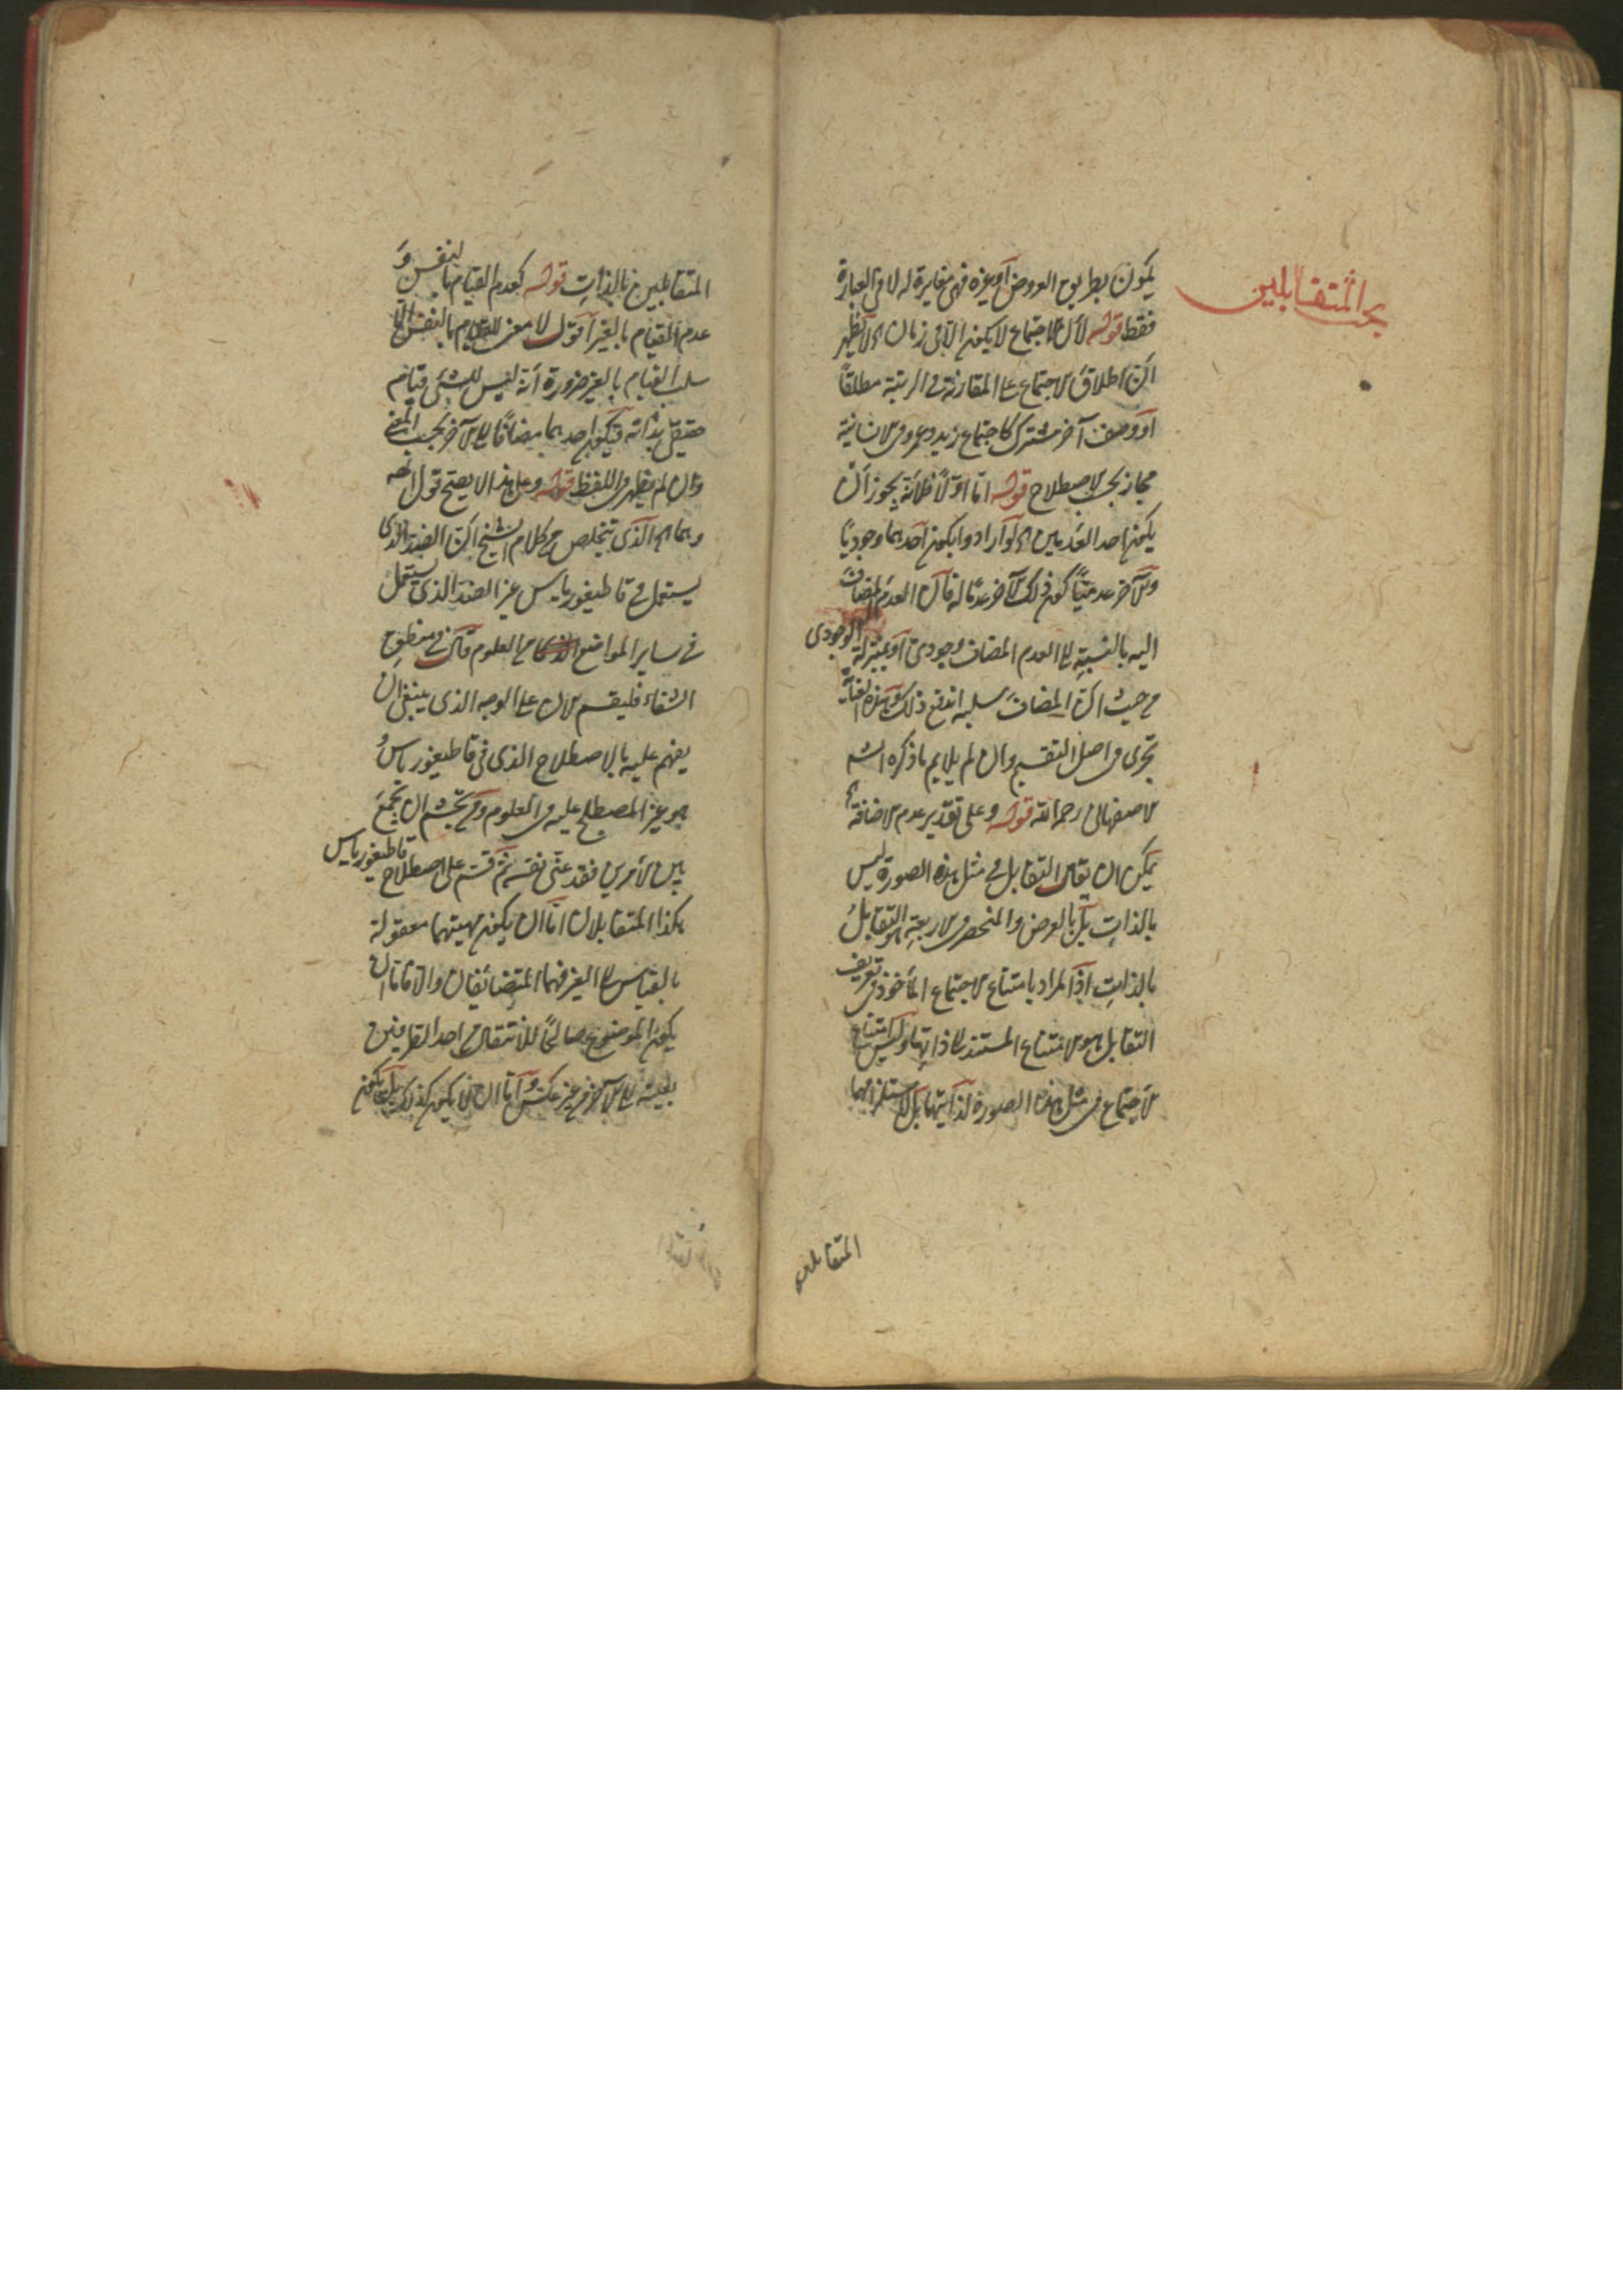 بحث المتقابلين
يكون بطريق العروض أو غيره فهي مغايرة له لا في العبارة
فقط قوله لأن الاجتماع لا يكون إلا في زمان الأظهر
أن اطلاق الاجتماع على المقارنة في الرتبة مطلقًا
أو وصف آخر مشترك كاجتماع زيد وعمرو في الانسانية
مجاز بحسب الاصطلاح قوله امّا أوّلًا فلأنّه يجوز أن
يكون احد العدمين لو أرادوا بكون أحدهما وجوديًا
والآخر عدميّا كون ذلك الآخر عدمًا له فان العدم المضاف
اليه بالنسبة الى العدم المضاف وجودي أو بمنزلة الوجودي
من حيث ان المضاف سلبه اندفع ذلك وهذه العناية
تجري في اصل التقسيم وان لم يلايم ما ذكره الش
الاصفهاني رحمه الله قوله وعلى تقدير عدم الاضافة
يمكن ان يقال التقابل في مثل هذه الصورة ليس
بالذات بل بالعرض والمنحصر في الاربعة هو التقابل
بالذات اذ المراد بامتناع الاجتماع المأخوذ في تعريف
التقابل هو الامتناع المستند الى ذاتيهما وليس امتناع
الاجتماع في مثل هذه الصورة لذاتيهما بل لاستلزامهما
المتقابلين
المتقابلين بالذات قوله كعدم القيام بالنفس و
عدم القيام بالغير أقول لا معنى للقيام بالنفس إلا
سلب القيام بالغير ضرورة أنّه ليس للشيء قيام
حقيقي بذاته فيكون احدهما مضافًا الى الآخر بحسب المعنى
وان لم يظهر في اللفظ قوله وعلى هذا لا يصح قول الش
وهما الذي يتخلص من كلام الشيخ ان الضد الذي
يستعمل في قاطيغورياس غير الضد الذي يستعمل
في ساير المواضع من العلوم قال في منطق
الشفاء فليقسم الان على الوجه الذي ينبغي ان
يفهم عليه بالاصطلاح الذي في قاطيغورياس
هو غير المصطلح عليه في العلوم ومن تجشم ان يجمع
بين الأمرين فقد عنّى نفسه ثم قسم على اصطلاح قاطيغورياس
هكذا المتقابلان امّا ان يكون مهيتهما معقولة
بالقياس الى الغير فهما المتضائفان والا فاما ان
يكون الموضوع صالحًا للانتقال من احد الطرفين
بعينه الى الآخر من غير عكس وامّا ان لا يكون كذلك بل يكون